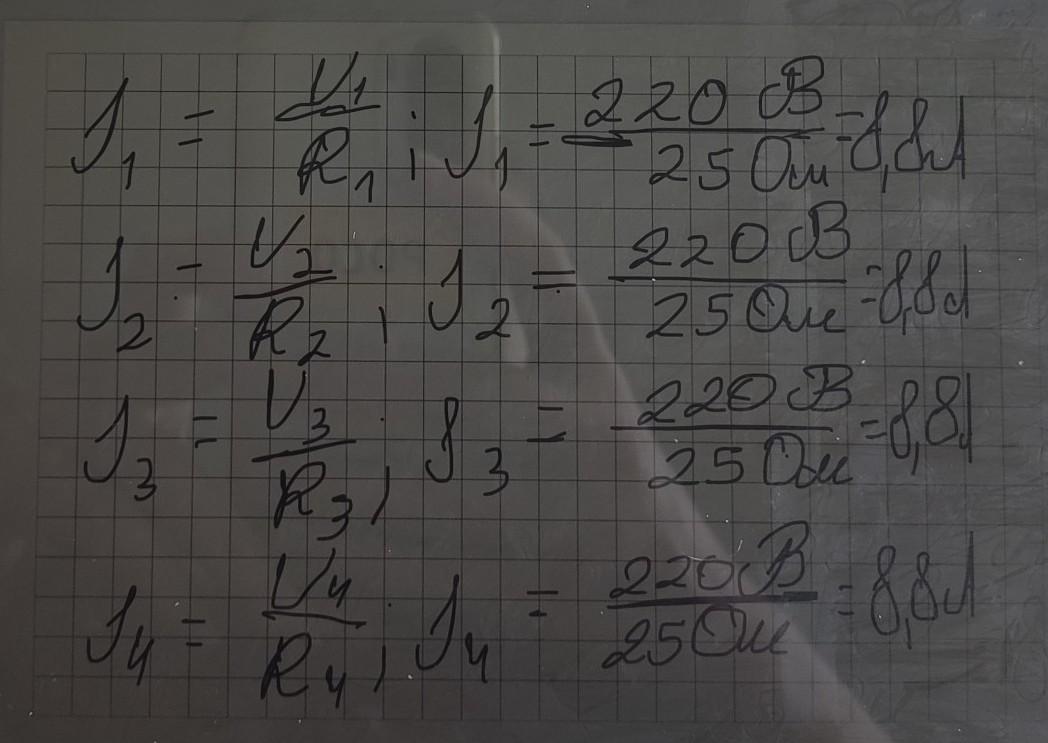 I₁ = U₁/R₁ ; I₁ = 220 В/25 Ом = 8,8А
I₂ = U₂/R₂ ; I₂ = 220 В/25 Ом = 8,8А
I₃ = U₃/R₃ ; I₃ = 220 В/25 Ом = 8,8А
I₄ = U₄/R₄ ; I₄ = 220 В/25 Ом = 8,8А